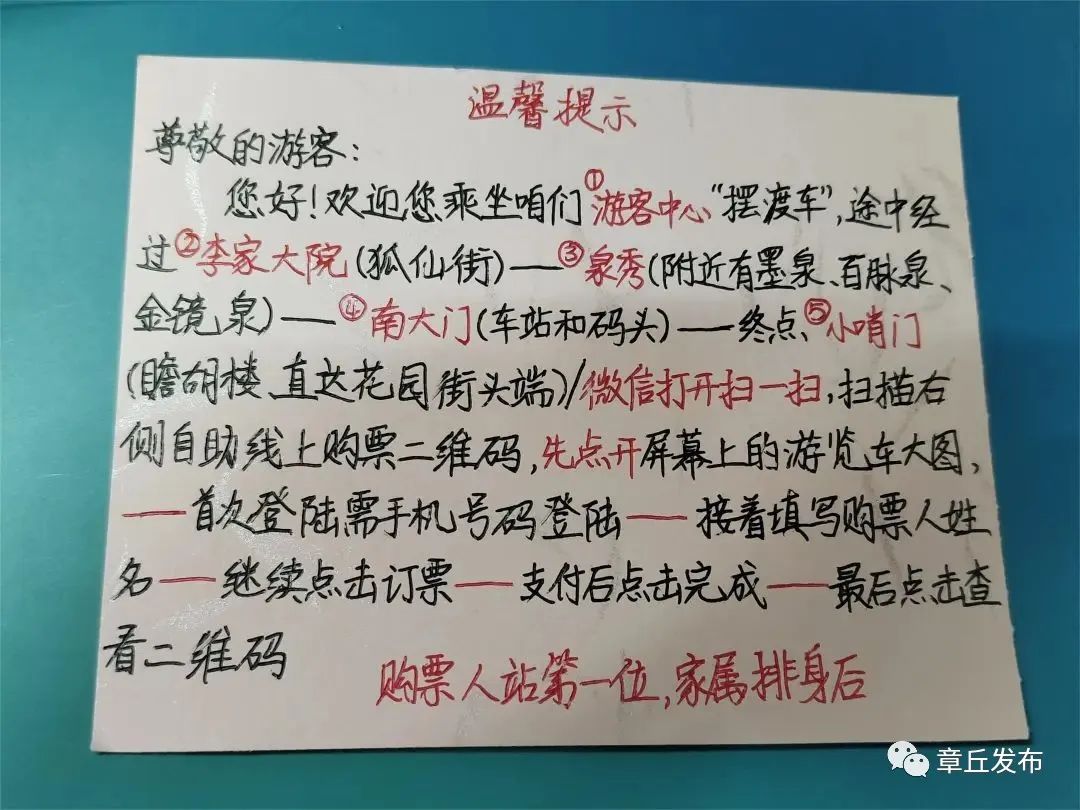 温馨提示
尊敬的游客:
您好!欢迎您乘坐咱们①游客中心“摆渡车”,途中经
过②李家大院(狐仙街)——③泉秀(附近有墨泉、百脉泉、
金镜泉)——④南大门(车站和码头)——终点⑤小哨门
(瞻胡楼、直达花园街头端)/微信打开扫一扫,扫描右
侧自助线上购票二维码,先点开屏幕上的游览车大图,
——首次登陆需手机号码登陆——接着填写购票人姓
名——继续点击订票——支付后点击完成——最后点击查
看二维码
购票人站第一位,家属排身后
章丘发布